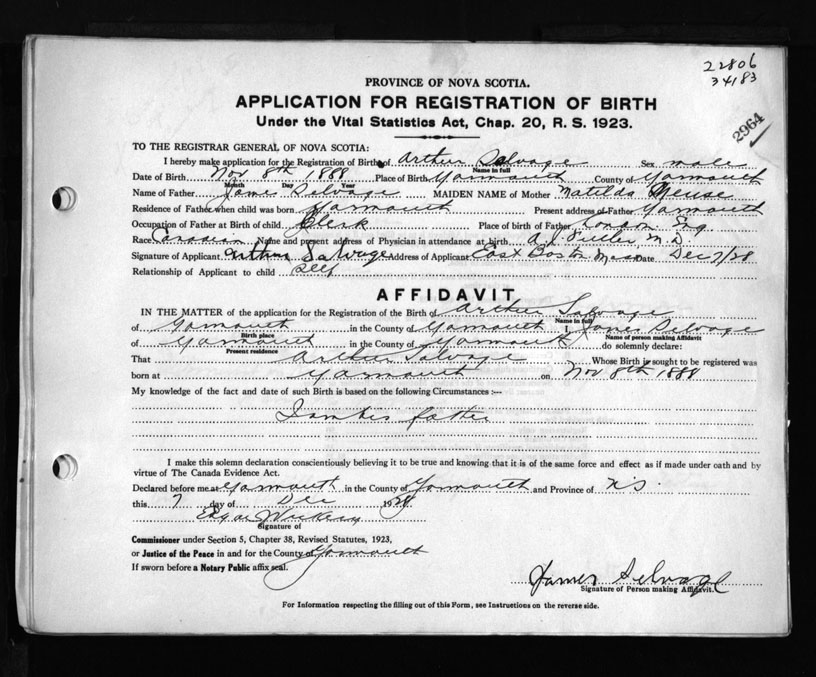 22806
34183
2964
PROVINCE OF NOVA SCOTIA.
APPLICATION FOR REGISTRATION OF BIRTH
Under the Vital Statistics Act, Chap. 20, R. S. 1923.
TO THE REGISTRAR GENERAL OF NOVA SCOTIA:
I hereby make application for the Registration of Birth of Arthur Selvage Sex male
Name in full
Date of Birth Nov 8th 1888 Place of Birth Yarmouth County of Yarmouth
Month Day Year
Name of Father James Selvage MAIDEN NAME of Mother Matilda Meuse
Residence of Father when child was born Yarmouth Present address of Father Yarmouth
Occupation of Father at Birth of child Clerk Place of birth of Father London Eng
Race Canadian Name and present address of Physician in attendance at birth A. J. Fuller M.D.
Signature of Applicant Arthur Salvage Address of Applicant East Boston Mass Date Dec 7/28
Relationship of Applicant to child self
AFFIDAVIT
IN THE MATTER of the application for the Registration of the Birth of Arthur Salvage
Name in full
of Yarmouth in the County of Yarmouth I, James Selvage
Birth place Name of person making Affidavit
of Yarmouth in the County of Yarmouth do solemnly declare:
Present residence
That Arthur Salvage Whose Birth is sought to be registered was
born at Yarmouth on Nov 8th 1888
My knowledge of the fact and date of such Birth is based on the following Circumstances :—
I am his father
I make this solemn declaration conscientiously believing it to be true and knowing that it is of the same force and effect as if made under oath and by
virtue of The Canada Evidence Act.
Declared before me at Yarmouth in the County of Yarmouth and Province of N S.
this 7 day of Dec 1928
Edgar Vickery
Signature of
Commissioner under Section 5, Chapter 38, Revised Statutes, 1923,
or Justice of the Peace in and for the County of Yarmouth
If sworn before a Notary Public affix seal.
James Selvage
Signature of Person making Affidavit.
For Information respecting the filling out of this Form, see Instructions on the reverse side.